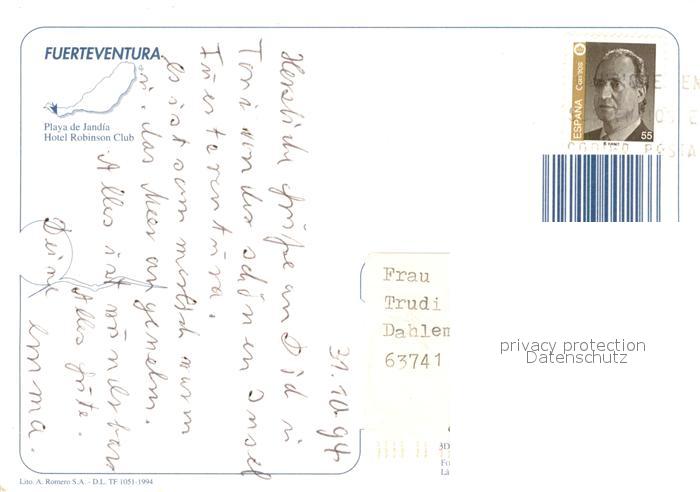 FUERTEVENTURA
Playa de Jandía
Hotel Robinson Club
31.10.94
Herzliche Grüße an Dich
Toni von der schönen Insel
Fuerteventura.
Es ist sommerlich warm
das Meer angenehm.
Alles ist wunderbar
Alles Gute.
Deine
Emma.
ESPAÑA
Correos
55
Frau
Trudi
Dahlem
63741
privacy protection
Datenschutz
Lito. A. Romero S.A. - D.L. TF 1051-1994